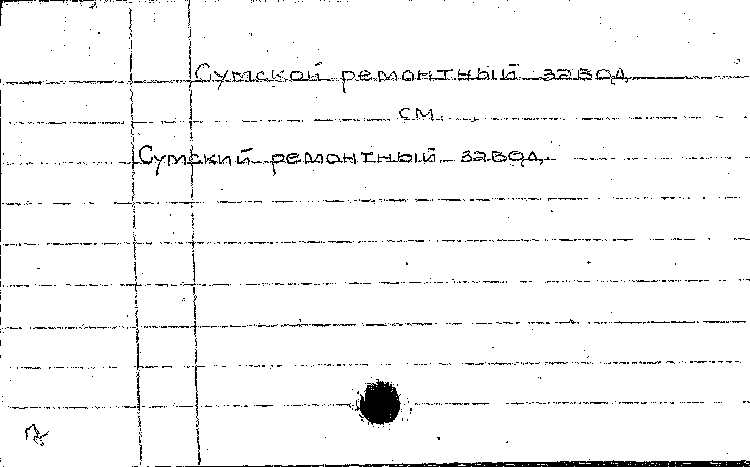 Сумской ремонтный завод
см.
Сумский ремонтный завод.